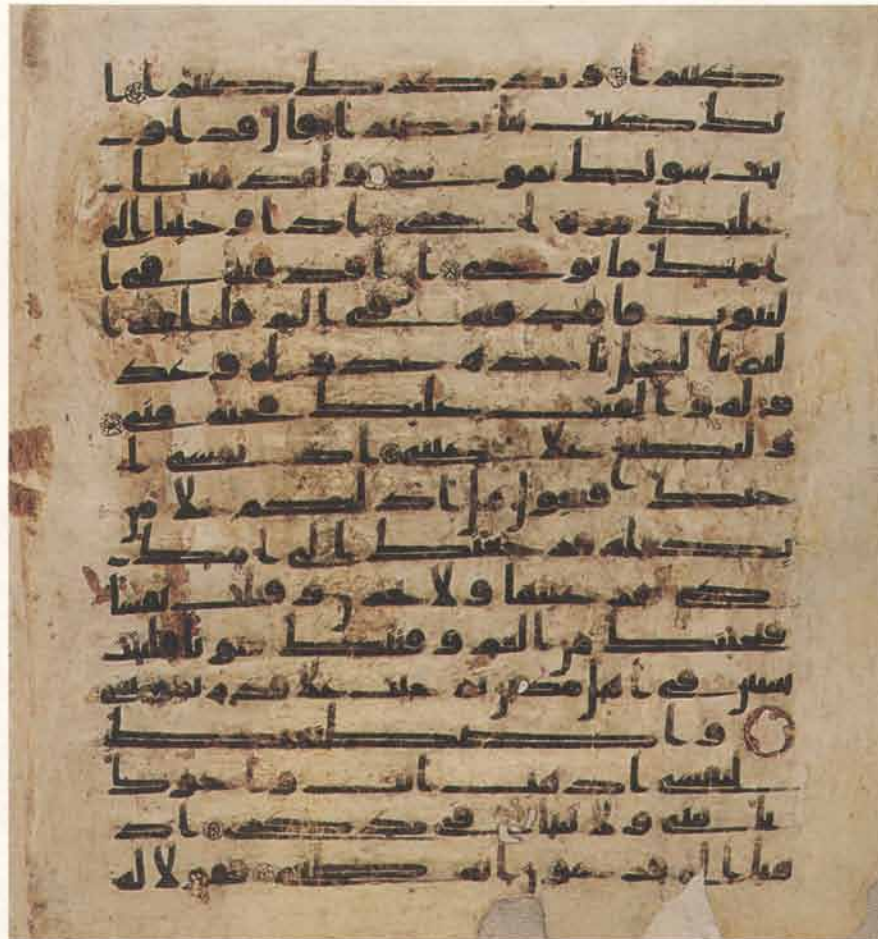 كثيرا ونذكرك كثيرا ا
نك كنت بنا بصيرا قال قد او
تيت سولك يموسى ولقد مننا
عليك مره اخرى اذ اوحينا الى
امك ما يوحى ان اقذفيه في ا
لتبوت فاقذفيه في اليم فليلقه ا
ليم بالسحل ياخذه عدو لي وعد
و له والقيت عليك محبه مني
ولتصنع على عيني اذ تمشي ا
ختك فتقول هل ادلكم على من
يكفله فرجعنك الى امك
كي تقر عينها ولا تحزن وقتلت نفسا
فنجينك من الغم وفتنك فتونا فلبثت
سنين في اهل مدين ثم جيت على قدر يموسى
واصطنعتك
لنفسي اذهب انت واخوك
بايتي ولا تنيا في ذكري اذ
هبا الى فرعون انه طغى فقولا له